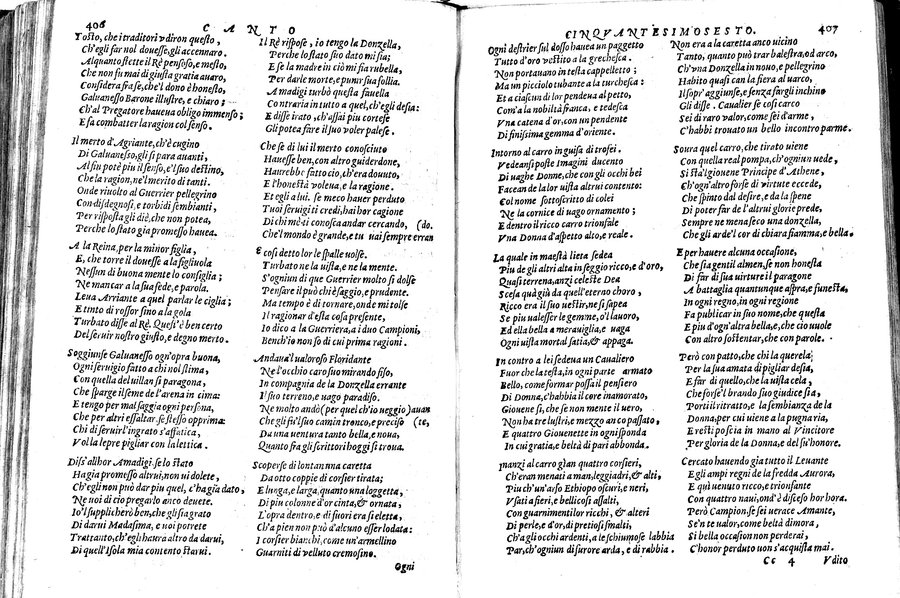 406
CANTO
Tosto, che i traditori vdiron questo,
Ch'egli far nol douesse, gli accennaro.
Alquanto stette il Rè pensoso, e mesto,
Che non fu mai di giusta gratia auaro,
Considera fra se, che'l dono è honesto,
Galuanesso Barone illustre, e chiaro;
Ch'al Pregatore haueua obligo immenso;
E fa combatter la ragion col senso.
Il merto d'Agriante, ch'è cugino
Di Galuanesso, gli si para auanti,
Al fin potè piu il senso, e'l suo destino,
Che la ragion, ne'l merito di tanti.
Onde riuolto al Guerrier pellegrino
Con disdegnosi, e torbidi sembianti,
Per risposta gli diè, che non potea,
Perche lo stato gia promesso hauea.
A la Reina, per la minor figlia,
E, che torre il douesse a la figliuola
Nessun di buona mente lo consiglia;
Ne mancar a la sua fede, e parola.
Leua Arriante a quel parlar le ciglia;
E tinto di rossor sino a la gola
Turbato disse al Rè. Quest'è ben certo
Del seruir nostro giusto, e degno merto.
Soggiunse Galuanesso ogn'opra buona,
Ogni seruigio fatto a chi nol stima,
Con quella del uillan si paragona,
Che sparge il seme de l'arena in cima:
E tengo per mal saggia ogni persona,
Che per altri essaltar, se stesso opprima:
Chi di seruir l'ingrato s'affatica,
Vol la lepre pigliar con la lettica.
Diss'allhor Amadigi, se lo stato
Ha gia promesso altrui, non ui dolete,
Ch'egli non può dar piu quel, c'ha gia dato,
Ne uoi di cio pregarlo anco deuete.
Io'l supplicherò ben, che gli sia grato
Di darui Madasima, e uoi potrete
Trattanto, ch'egli haurà altro da darui,
Di quell'Isola mia contento starui.
Il Rè rispose, io tengo la Donzella,
Perche lo stato suo dato mi sia;
E se la madre in ciò mi fia rubella,
Per darle morte, e punir sua follia.
Amadigi turbò questa fauella
Contraria in tutto a quel, ch'egli desia:
E disse irato, ch'assai piu cortese
Gli potea fare il suo voler palese.
Che se di lui il merto conosciuto
Hauesse ben, con altro guiderdone,
Haurebbe fatto cio, ch'era douuto,
E l'honestà voleua, e la ragione.
Et egli a lui. se meco hauer perduto
Tuoi seruigi ti credi, hai hor cagione
Di chi mè ti conosca andar cercando, (do.
Che'l mondo è grande, e tu uai sempre erran
E cosi detto lor le spalle uolse.
Turbato ne la uista, e ne la mente.
S'ogniun di que Guerrier molto si dolse
Pensare il può chi è saggio, e prudente.
Ma tempo è di tornare, onde mi tolse
Il ragionar d'esta cosa presente,
Io dico a la Guerriera, a i duo Campioni,
Bench'io non so di cui prima ragioni.
Andaua'l ualoroso Floridante
Ne l'occhio caro suo mirando fiso,
In compagnia de la Donzella errante
Il suo terreno, e uago paradiso.
Ne molto andò (per quel ch'io ueggio) auan
Che gli fu'l suo camin tronco, e preciso (te,
Da una uentura tanto bella, e noua,
Quanto fra gli scrittori hoggi si troua.
Scoperse di lontan una caretta
Da otto coppie di corsier tirata;
E lunga, e larga, quanto una loggetta,
Di piu colonne d'or cinta, & ornata,
L'opra dentro, e di fuori era si eletta,
Ch'a pien non può d'alcuno esser lodata:
I corsier bianchi, come un'armellino
Guarniti di velluto cremosino.
Ogni
CINQVANTESIMOSESTO.
407
Ogni destrier sul dosso hauea un paggetto
Tutto d'oro vestito a la grechesca.
Non portauano in testa cappelletto;
Ma un picciolo tubante a la turchesca:
Et a ciascun di lor pendeua al petto,
Com'a la nobiltà franca, e tedesca
Vna catena d'or, con un pendente
Di finissima gemma d'oriente.
Intorno al carro in guisa di trofei.
Vedeansi poste Imagini ducento
Di uaghe Donne, che con gli occhi bei
Facean de la lor uista altrui contento:
Col nome sottoscritto di colei
Ne la cornice di uago ornamento;
E dentro il ricco carro trionfale
Vna Donna d'aspetto alto, e reale.
La quale in maestà lieta sedea
Piu de gli altri alta in seggio ricco, e d'oro,
Quasi terrena, anzi celeste Dea
Scesa quà giù da quel'eterno choro,
Ricco era il suo uestir, ne si sapea
Se piu ualesser le gemme, o'l lauoro,
Ed ella bella a merauiglia, e uaga
Ogni uista mortal satia, & appaga.
In contro a lei sedena un Caualiero
Fuor che la testa, in ogni parte armato
Bello, come formar possa il pensiero
Di Donna, c'habbia il core inamorato,
Giouene si, che se non mente il uero,
Non ha tre lustri, e mezzo anco passato,
E quattro Giouenette in ogni sponda
In cui gratia, e beltà di pari abbonda.
Inanzi al carro gian quattro corsieri,
Ch'eran menati a man, leggiadri, & alti,
Piu ch'un'arso Ethiopo oscuri, e neri,
Vsati a fieri, e bellicosi assalti,
Con guarnimenti lor ricchi, & alteri
Di perle, e d'or, di pretiosi smalti,
Ch'a gli occhi ardenti, a le schiumose labbia
Par, ch'ogniun di furore arda, e di rabbia.
Non era a la caretta anco uicino
Tanto, quanto può trar balestra, od arco,
Ch'vna Donzella in nouo, e pellegrino
Habito quasi can la fiera al uarco,
Il sopr'aggiunse, e senza fargli inchino
Gli disse. Caualier se cosi carco
Sei di raro valor, come sei d'arme,
C'habbi trouato un bello incontro parme.
Soura quel carro, che tirato uiene
Con quella real pompa, ch'ogniun uede,
Si sta'l giouene Principe d'Athene,
Ch'ogn'altro forse di virtute eccede,
Che spinto dal desire, e da la spene
Di poter far de l'altrui glorie prede,
Sempre ne mena seco una donzella,
Che gli arde'l cor di chiara fiamma, e bella.
E per hauere alcuna occasione,
Che sia gentil almen, se non honesta
Di far di sua uirture il paragone
A battaglia quantunque aspra, e funesta,
In ogni regno, in ogni regione
Fa publicar in suo nome, che questa
E piu d'ogn'altra bella, e, che cio uuole
Con altro sostentar, che con parole.
Però con patto, che chi la querela;
Per la sua amata di pigliar desia,
E far di quello, che la uista cela,
Che forse'l brando suo giudice sia,
Porti il ritratto, e la sembianza de la
Donna, per cui uiene a la pugna ria,
E resti poscia in mano al Vincitore
Per gloria de la Donna, e del su'honore.
Cercato hauendo gia tutto il Leuante
E gli ampi regni de la fredda Aurora,
E quì uenuto ricco, e trionfante
Con quattro naui, ond'è disceso hor hora.
Però Campion, se sei uerace Amante,
Se'n te ualor, come beltà dimora,
Si bella occasion non perderai,
C'honor perduto uon s'acquista mai.
Cc 4
Vdito